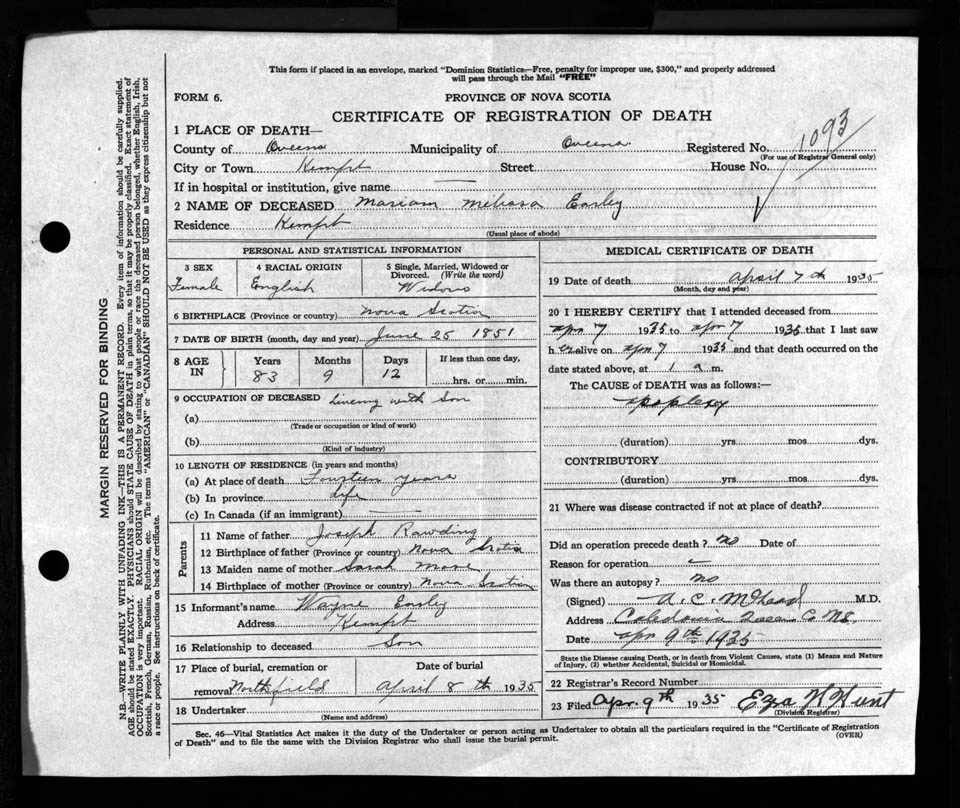 This form if placed in an envelope, marked "Dominion Statistics—Free, penalty for improper use, $300," and properly addressed
will pass through the Mail "FREE"
FORM 6.
PROVINCE OF NOVA SCOTIA
CERTIFICATE OF REGISTRATION OF DEATH
1093
1 PLACE OF DEATH—
County of Queens Municipality of Queens Registered No.
(For use of Registrar General only)
City or Town Kempt Street House No.
If in hospital or institution, give name —
2 NAME OF DECEASED Mariam Melissa Earley
Residence Kempt
(Usual place of abode)
PERSONAL AND STATISTICAL INFORMATION
3 SEX 4 RACIAL ORIGIN 5 Single, Married, Widowed or
Divorced. (Write the word)
Female English Widow
6 BIRTHPLACE (Province or country) Nova Scotia
7 DATE OF BIRTH (month, day and year) June 25 1851
8 AGE IN Years Months Days If less than one day,
83 9 12 hrs. or min.
9 OCCUPATION OF DECEASED with Son
(a)
(Trade or occupation or kind of work)
(b)
(Kind of industry)
10 LENGTH OF RESIDENCE (in years and months)
(a) At place of death Fourteen years
(b) In province life
(c) In Canada (if an immigrant) —
Parents
11 Name of father Joseph Rawding
12 Birthplace of father (Province or country) Nova Scotia
13 Maiden name of mother Sarah
14 Birthplace of mother (Province or country) Nova Scotia
15 Informant's name Wayne Earley
Address Kempt
16 Relationship to deceased Son
17 Place of burial, cremation or Date of burial
removal Northfield April 8th 1935
18 Undertaker
(Name and address)
MEDICAL CERTIFICATE OF DEATH
19 Date of death April 7th 1935
(Month, day and year)
20 I HEREBY CERTIFY that I attended deceased from
Apr 7 1935 to Apr 7 1935 that I last saw
her alive on Apr 7 1935 and that death occurred on the
date stated above, at 1 a m.
The CAUSE OF DEATH was as follows:—
apoplexy
(duration) yrs. mos. dys.
CONTRIBUTORY
(duration) yrs. mos. dys.
21 Where was disease contracted if not at place of death?
Did an operation precede death? no Date of
Reason for operation
Was there an autopsy? no
(Signed) A. C. M.D.
Address Caledonia Queens Co NS.
Date Apr 9th 1935
State the Disease causing Death, or in death from Violent Causes, state (1) Means and Nature
of Injury, (2) whether Accidental, Suicidal or Homicidal.
22 Registrar's Record Number
23 Filed Apr. 9th 1935 Ezra N Hunt
(Division Registrar)
Sec. 46—Vital Statistics Act makes it the duty of the Undertaker or person acting as Undertaker to obtain all the particulars required in the "Certificate of Registration
of Death" and to file the same with the Division Registrar who shall issue the burial permit.
(OVER)
MARGIN RESERVED FOR BINDING
N.B.—WRITE PLAINLY WITH UNFADING INK—THIS IS A PERMANENT RECORD. Every item of information should be carefully supplied.
AGE should be stated EXACTLY. PHYSICIANS should STATE CAUSE OF DEATH in plain terms, so that it may be properly classified. Exact statement of
OCCUPATION is very important. RACIAL ORIGIN will be described by stating to what people or race the deceased person belonged, whether English, Irish,
Scottish, French, German, Russian, Ruthenian, etc. The terms "AMERICAN" or "CANADIAN" SHOULD NOT BE USED as they express citizenship but not
a race or people. See instructions on back of certificate.